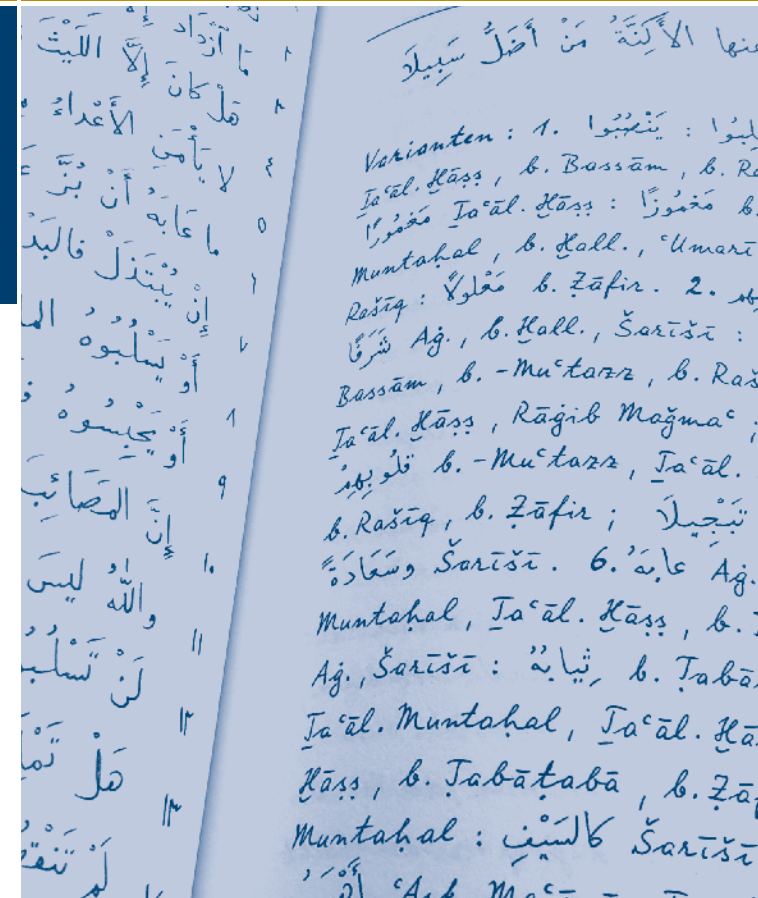 ٢ ما ٱزْدَادَ
٣ هَلْ كانَ إِلَّا اللَّيْثَ
٤ لا يَأْمَنِ الأَعْداءُ
٥ ما عَابَهُ أَنْ بُزَّ
٦ إِنْ يُبْتَذَلْ فالبَدْ
٧ أَوْ يَسْلُبُوهُ الما
٨ أَوْ يَحْبِسُوهُ
٩ إِنَّ المَصَائِبَ
١٠ واللّٰه ليس
١١ لَنْ تَسْلُبو
١٢ هَلْ تَمْ
١٣ لَمْ تَنْقُ
عنها الأَكِنَّةُ مَنْ أَضَلُّ سَبِيلَا
Varianten : 1. يَنْصُبُوا :
Ṯaʿāl. Ḫāṣṣ, b. Bassām, b. Ra
مَغْمُورًا Ṯaʿāl. Ḫāṣṣ : مَغْمُوزًا b.
Muntaḥal, b. Ḫall., ʿUmarī
Rašīq : مَغْلولاً b. Ẓāfir. 2.
شَرَفًا Aġ., b. Ḫall., Šarīšī :
Bassām, b. -Muʿtazz, b. Raš
Ṯaʿāl. Ḫāṣṣ, Rāġib Maǧmaʿ ;
قلوبِهِمْ b. -Muʿtazz, Ṯaʿāl.
b. Rašīq, b. Ẓāfir ; تَبْجِيلَا
وسَعَادَةً Šarīšī. 6. عابَهُ Aġ.
Muntaḥal, Ṯaʿāl. Ḫāṣṣ, b.
Aġ., Šarīšī : ثِيابُهُ b. Ṭabā
Ṯaʿāl. Muntaḥal, Ṯaʿāl. Ḫā
Ḫāṣṣ, b. Ṭabāṭabā, b. Ẓā
Muntaḥal : كالسَيْفِ Šarīšī